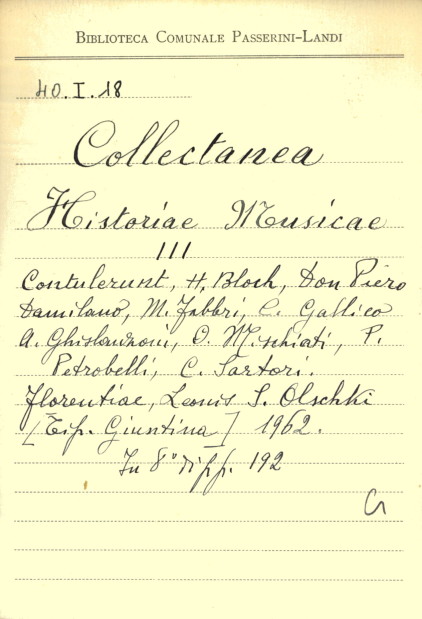 BIBLIOTECA COMUNALE PASSERINI-LANDI
40.I.18
Collectanea
Historiae Musicae
III
Contulerunt, H. Bloch, Don Piero
Damilano, M. Fabbri, C. Gallico
A. Ghislanzoni, O. Mischiati, P.
Petrobelli, C. Sartori.
Florentiae, Leonis S. Olschki
[Tip. Giuntina] 1962.
In 8° di pp. 192
G